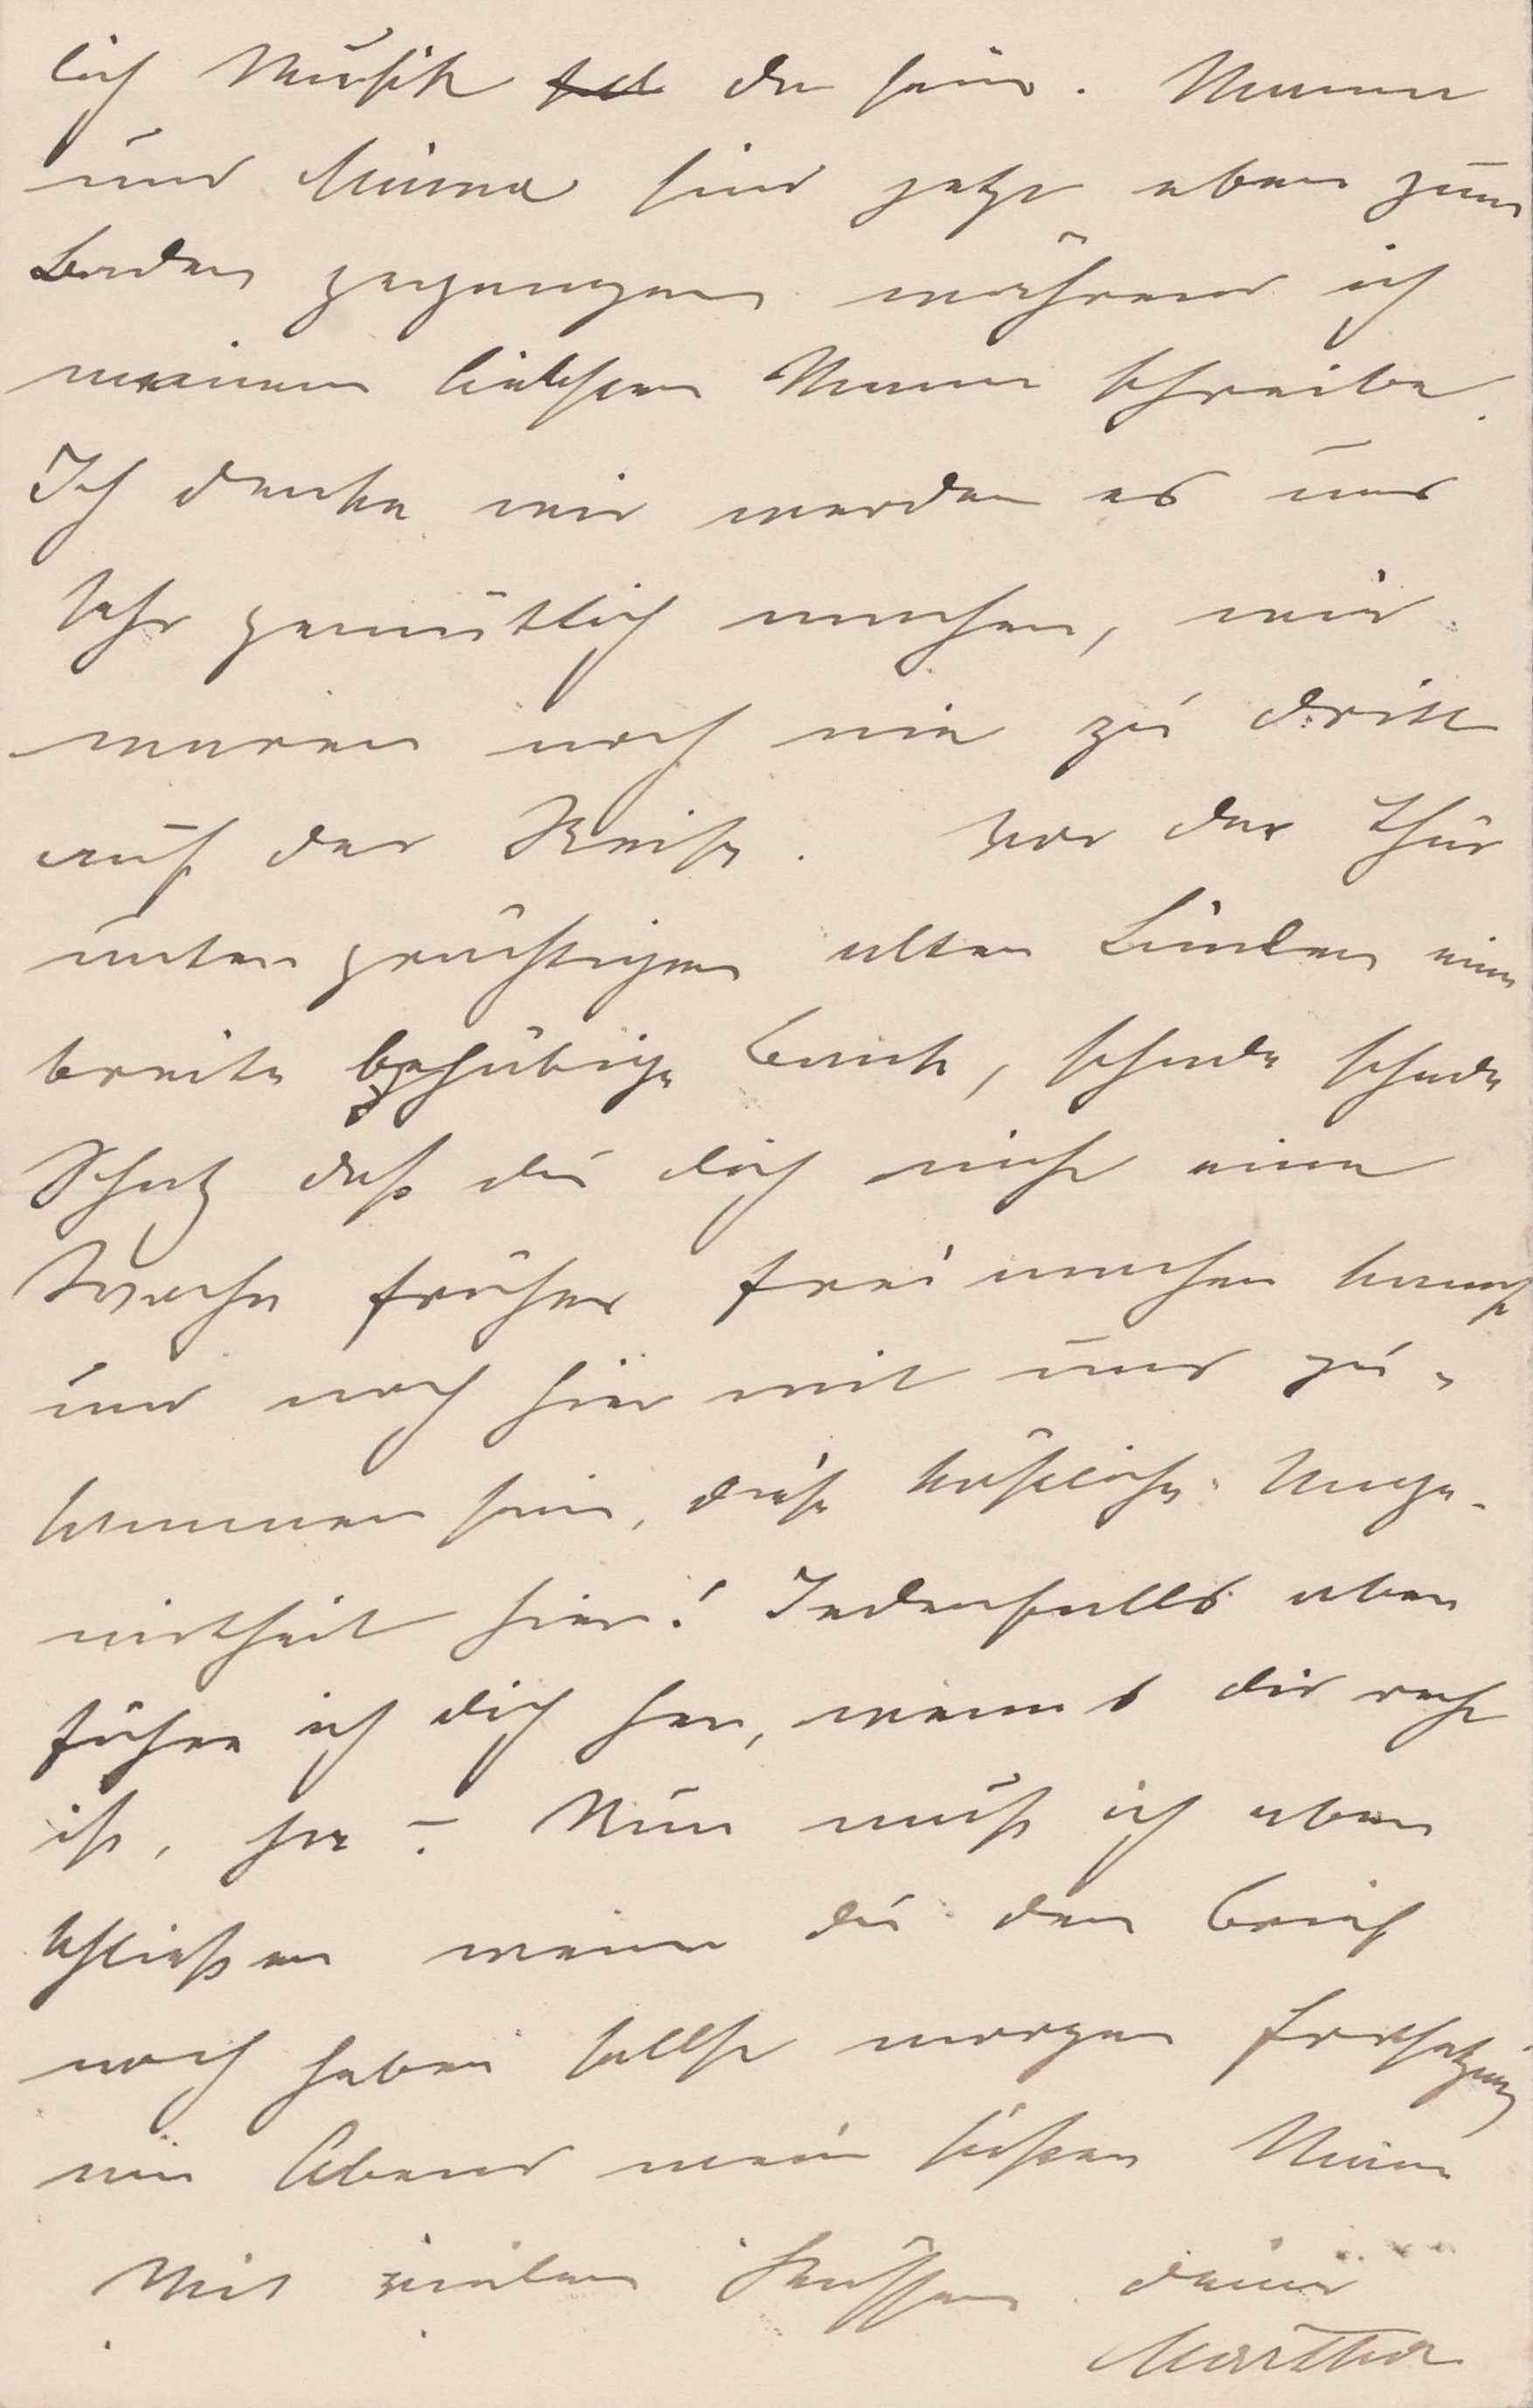 lich Musik da sein. Mama
und Minna sind jetzt eben zum
Baden gegangen während ich
meinem liebsten Mann schreibe.
Ich denke wir werden es uns
sehr gemütlich machen, wir
waren noch nie zu dritt
auf der Reise. Vor der Thür
unter prächtigen alten Linden eine
breite behäbige Bank, schade schade
Schatz daß du dich nicht eine
Woche früher frei machen kannst
und noch hier mit uns zu-
sammen sein, diese köstliche Unge-
nirtheit hier! Jedenfalls aber
führe ich dich her, wenn's dir recht
ist, ja? Nun muß ich aber
schließen wenn du den Brief
noch haben sollst morgen Fortsetzung
Abend mein süßer Mann
Mit vielen Küssen deine
Martha